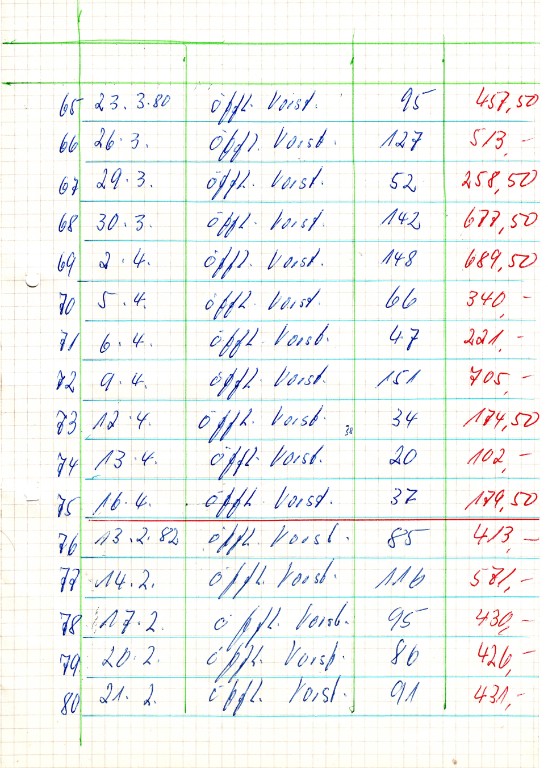 65 23.3.80 öffl. Vorst. 95 457,50
66 26.3. öffl. Vorst. 127 513,-
67 29.3. öffl. Vorst. 52 258,50
68 30.3. öffl. Vorst. 142 677,50
69 2.4. öffl. Vorst. 148 689,50
70 5.4. öffl. Vorst 66 340,-
71 6.4. öffl. Vorst. 47 221,-
72 9.4. öffl. Vorst. 151 705,-
73 12.4. öffl. Vorst. 34 34 174,50
74 13.4. öffl. Vorst. 20 102,-
75 16.4. öffl. Vorst. 37 179,50
76 13.2.82 öffl. Vorst. 85 413,-
77 14.2. öffl. Vorst. 116 571,-
78 17.2. öffl. Vorst. 95 430,-
79 20.2. öffl. Vorst. 86 426,-
80 21.2. öffl. Vorst. 91 431,-